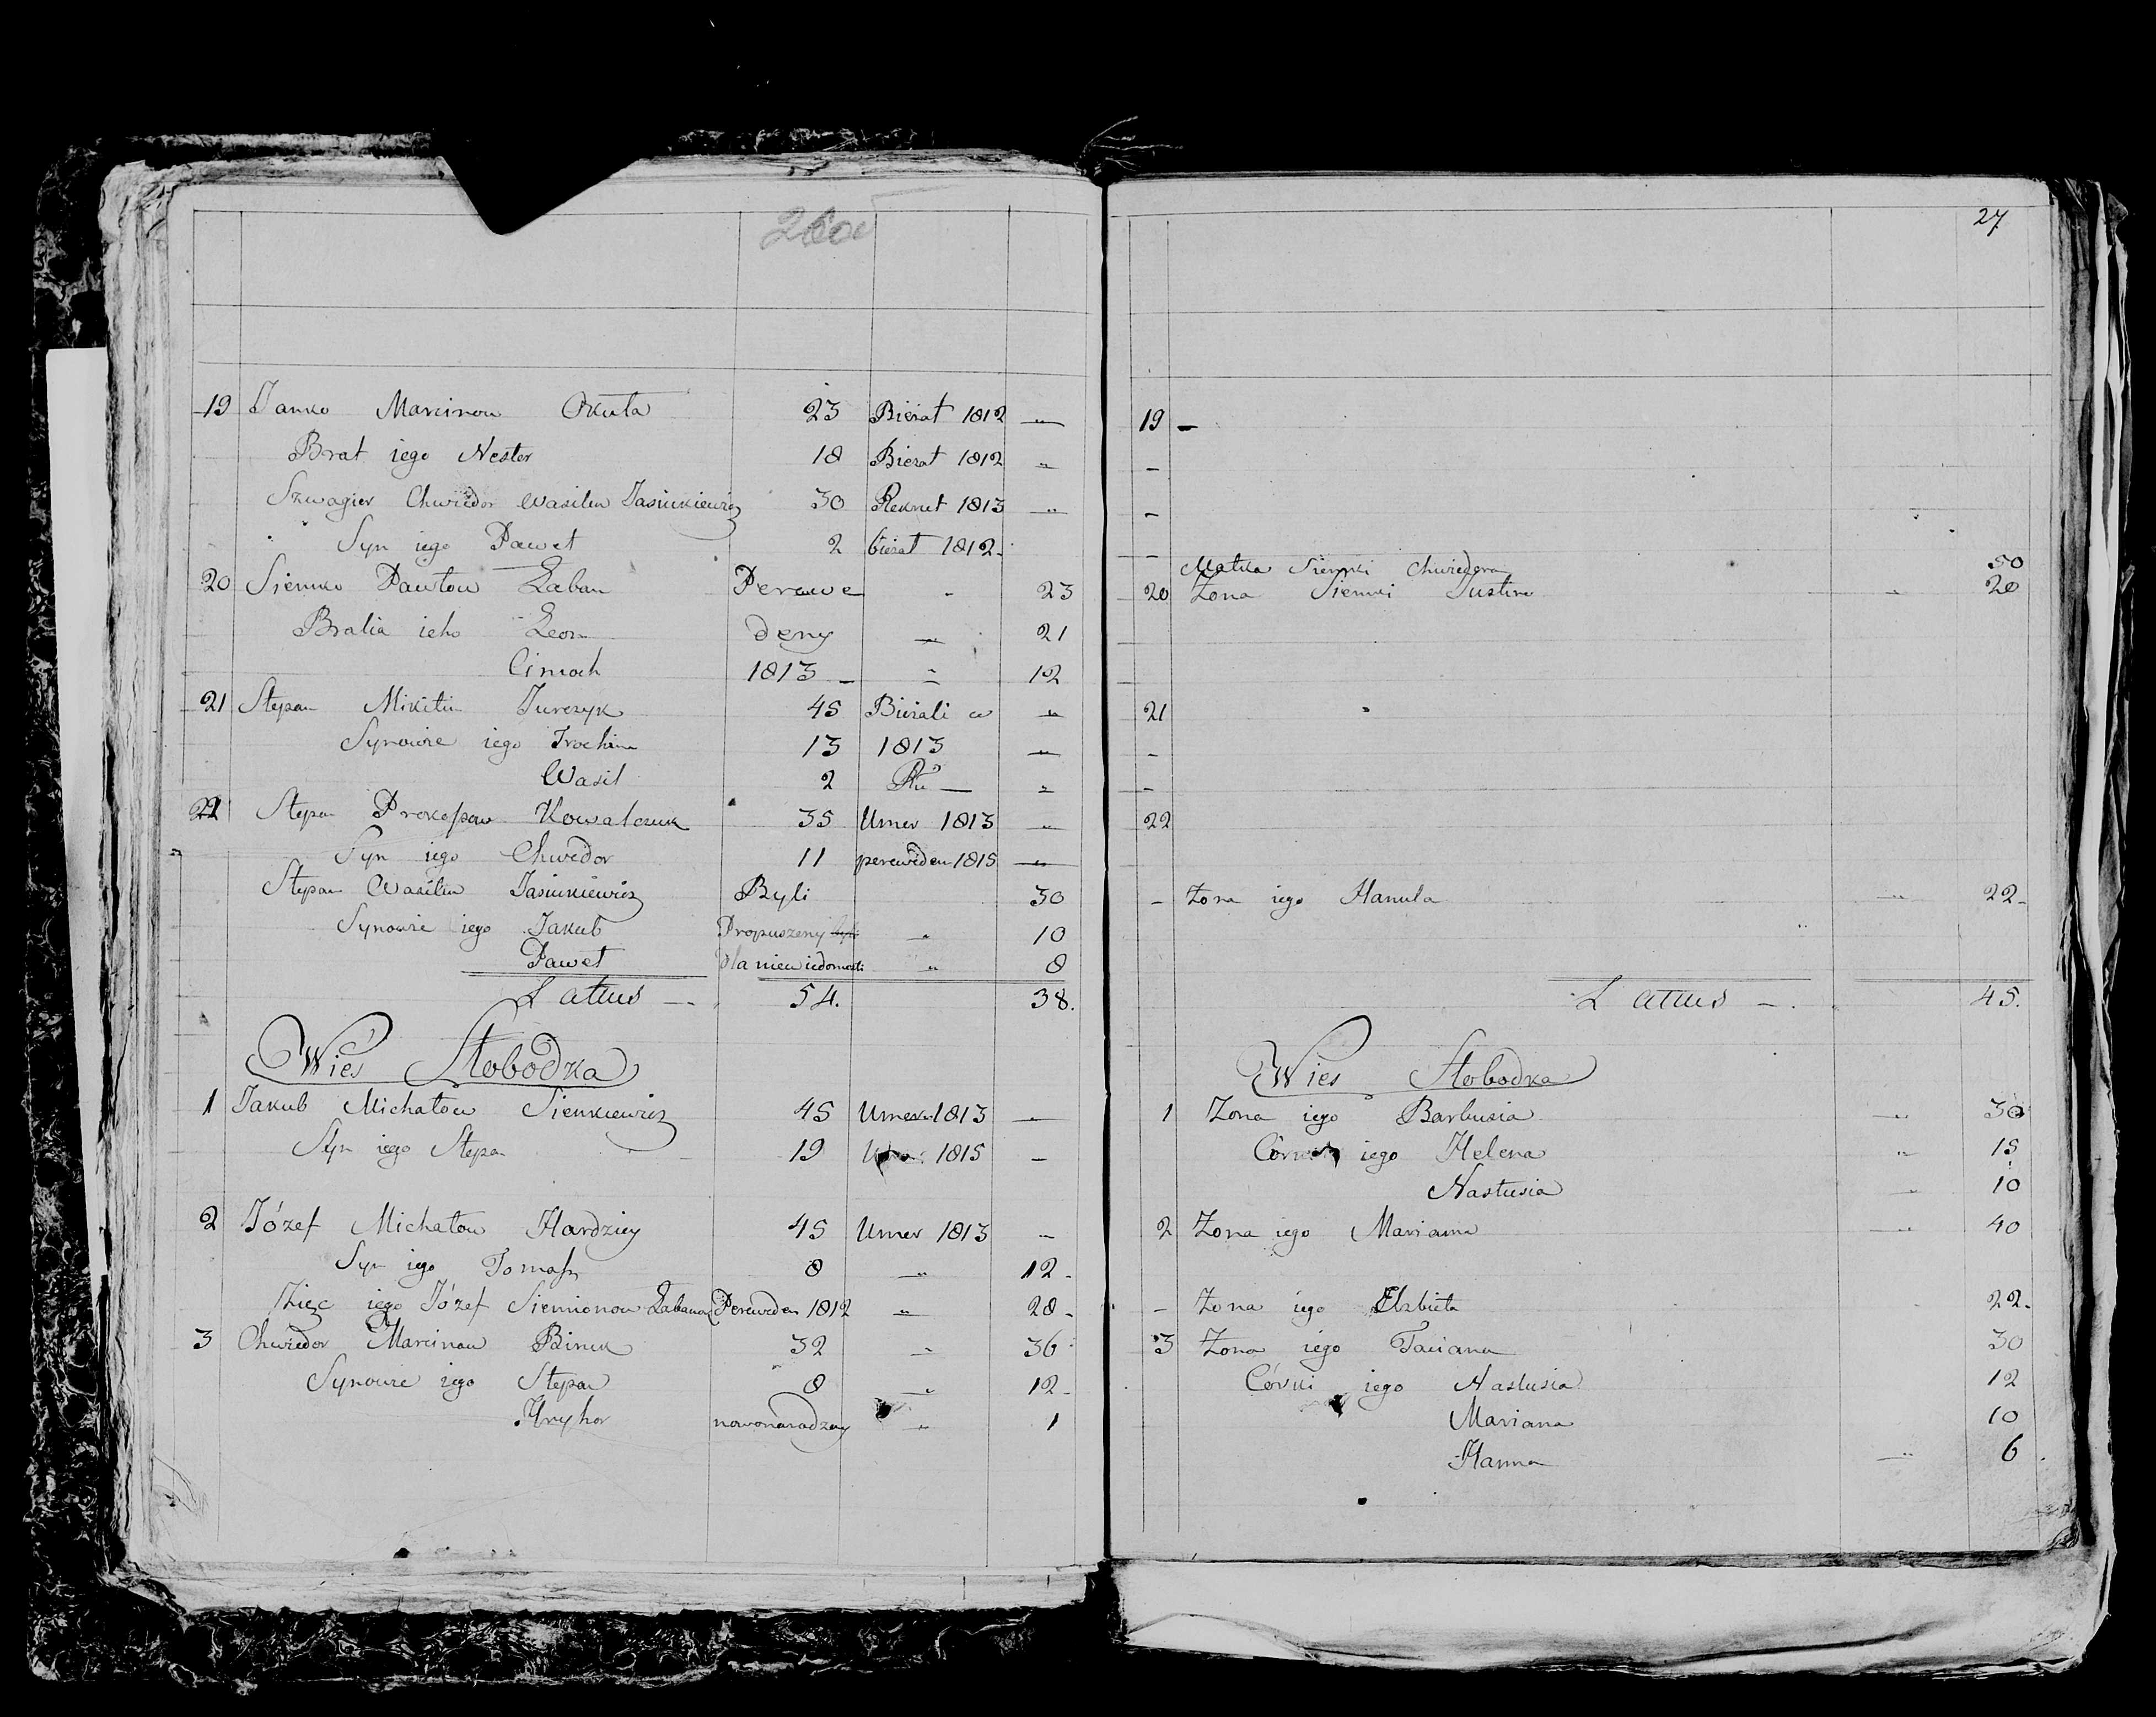 27
19 Janko Marcinow Okuła 23 Bieżał 1812 — 19 —
Brat iego Nester 18 Bieżał 1812 „ —
Szwagier Chwiedor Wasilew Jasiukiewicz 30 Rekrut 1813 „ —
Syn iego Paweł 2 bieżał 1812 - —
Matka Siemki Chwiedora 50
20 Siemko Pawłow Łaban Perewe - 23 20 Zona Siemki Justina „ 20
Bratia ieho Leon deny „ 21
Cimoch 1813 - „ 12
21 Stepan Mikitin Jurczyk 45 Bieżali w „ 21
Synowie iego Trochim 13 1813 „ -
Wasil 2 „ -
22 Stepan Prokopow Kowalczuk 35 Umer 1813 „ 22
Syn iego Chwedor 11 pereweden 1815 „
Stepan Wasilew Jasiukiewicz Byli 30 - Zona iego Hanula „ 22
Synowie iego Jakub Propuszeny „ 10
Paweł dla niewiedomosti „ 8
Latus — 54. 38. Latus — 45.
Wieś Słobodka Wies Słobodka
1 Jakub Michałow Sienkiewicz 45 Umer 1813 — 1 Zona iego Barbusia „ 30
Syn iego Stepan 19 1815 — iego Helena „ 15
Nastusia „ 10
2 Józef Michałow Hardziey 45 Umer 1813 - 2 Zona iego Mariana „ 40
Syn iego Tomasz 8 „ 12 -
Zięc iego Józef Siemionow Łabanow Pereweden 1812 „ 28 - - Zona iego Elzbieta 22 -
3 Chwiedor Marcinow Biruk 32 „ 36 3 Zona iego Taciana 30
Synowie iego Stepan 8 „ 12 - Córki iego Nastusia 12
Hryhor nowonarodzeny „ 1 Mariana 10
Hanna „ 6